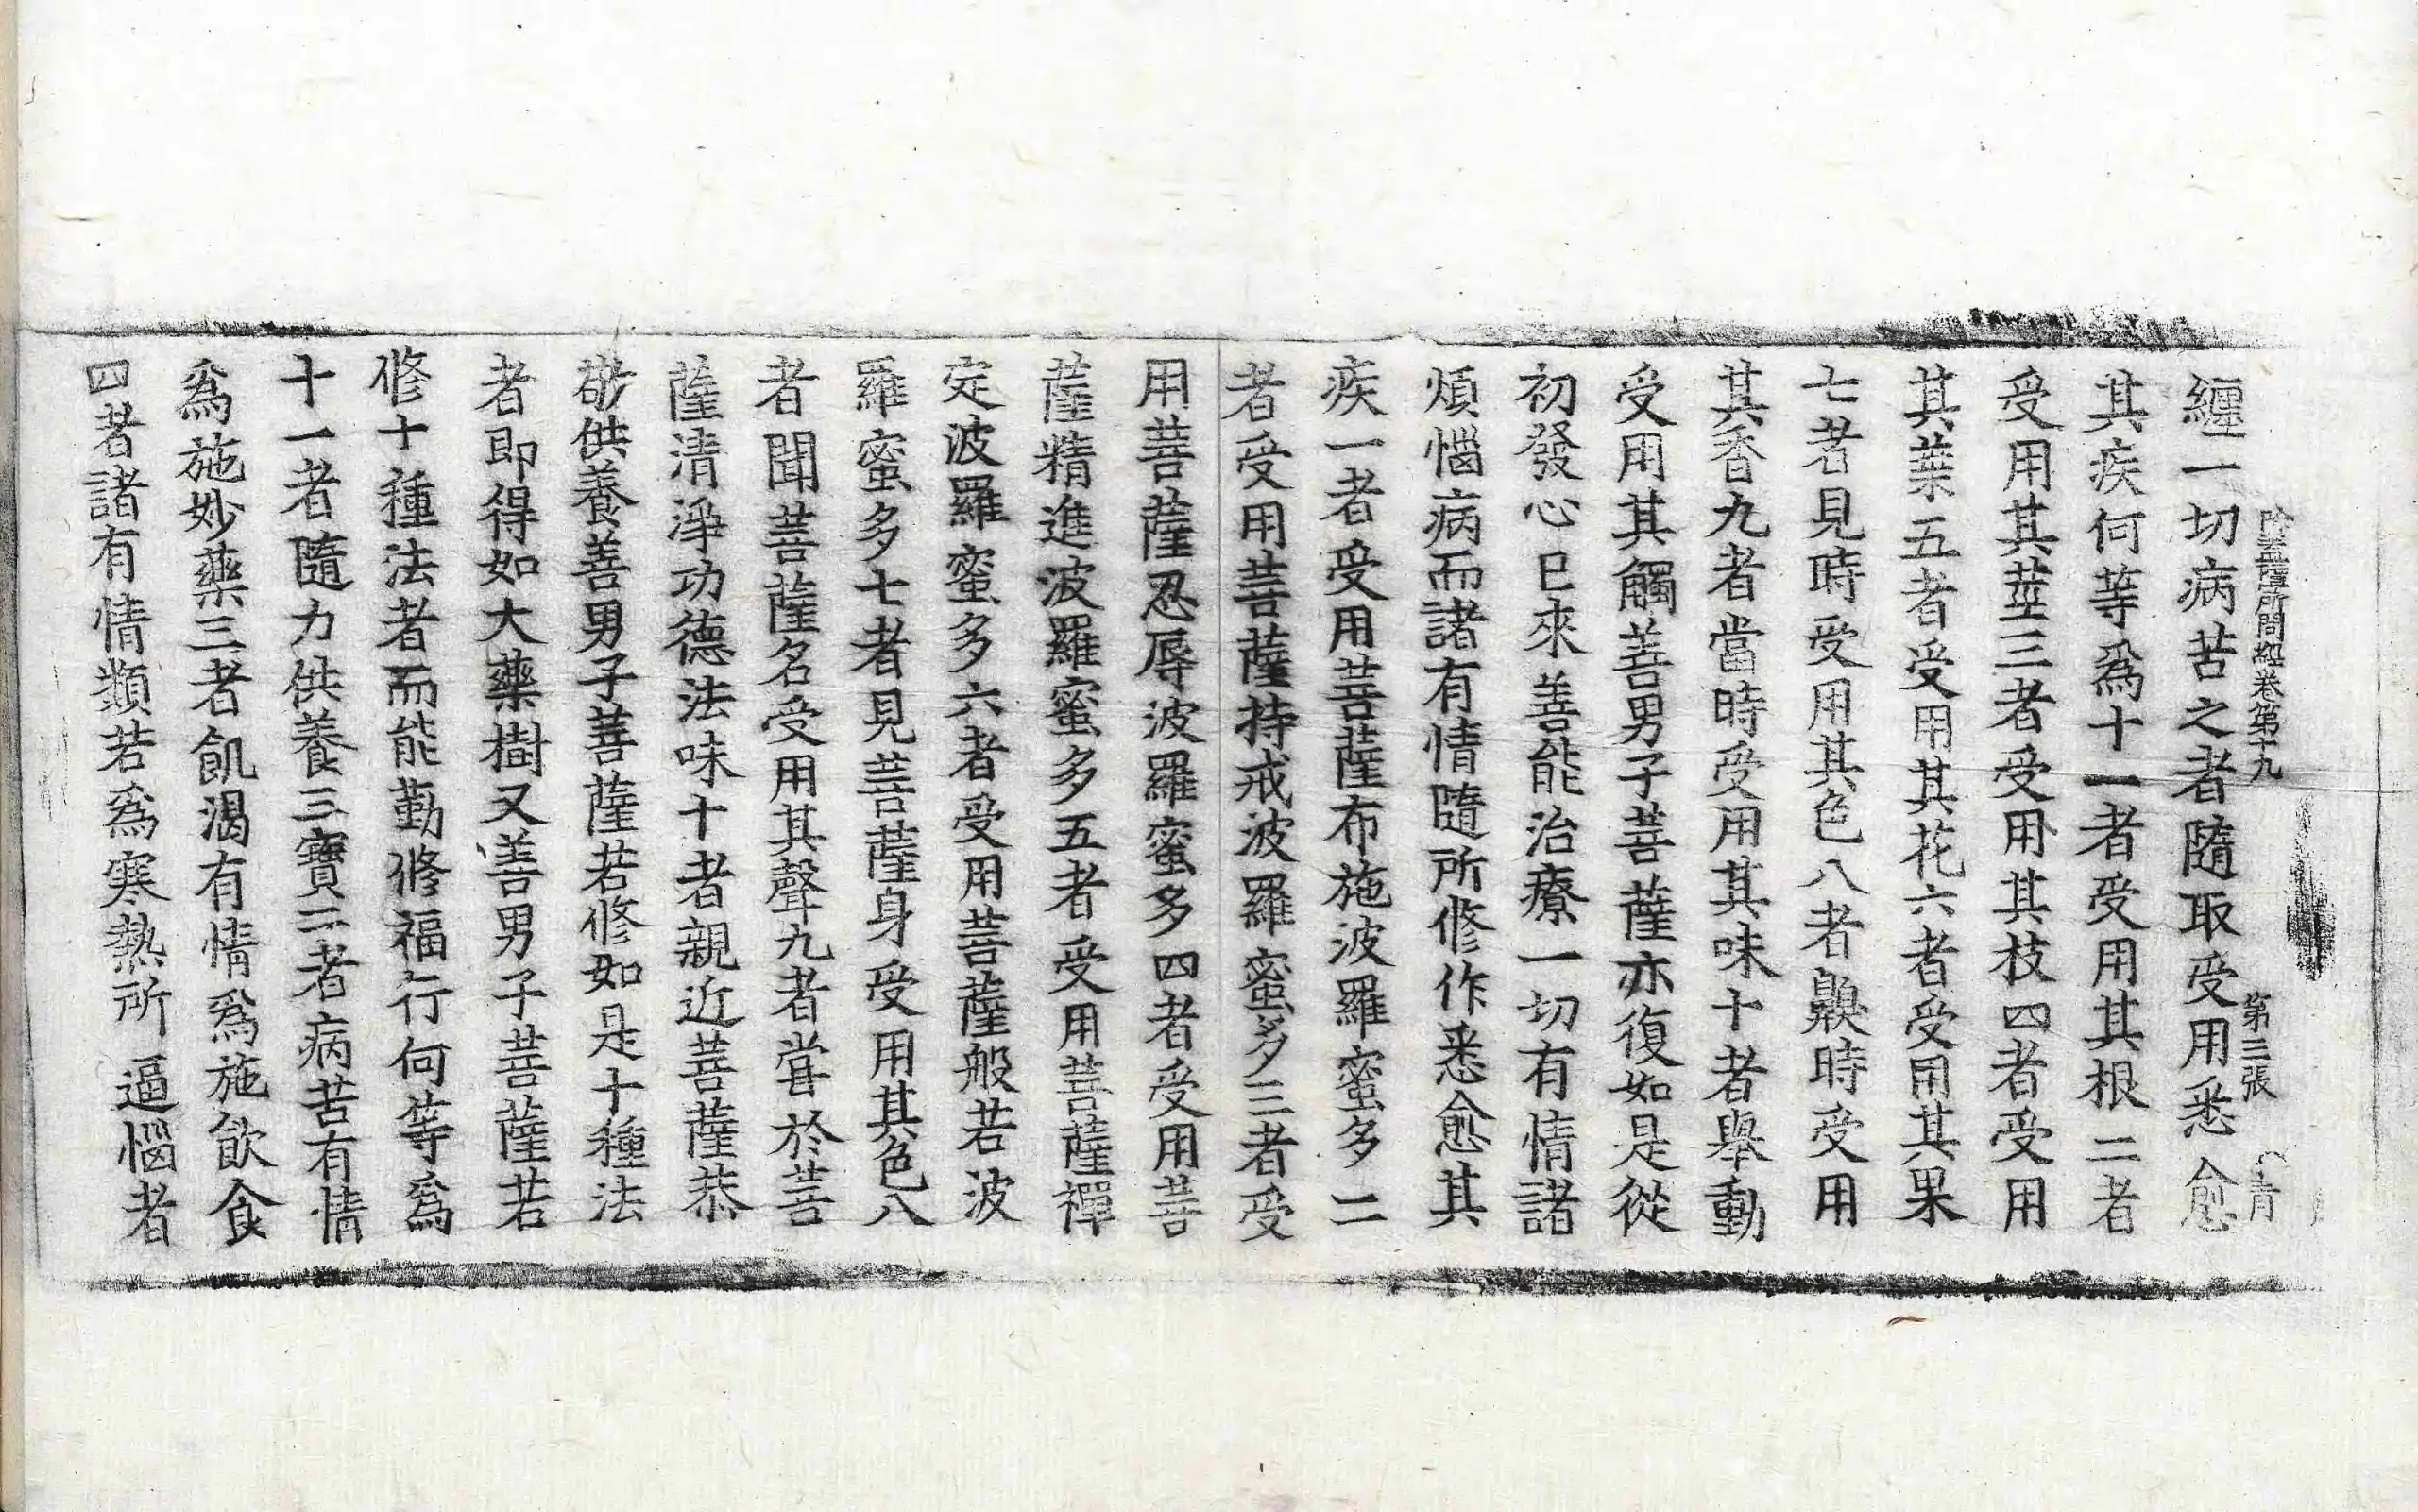 除蓋薩所問經卷第十九 第三張 青
纏一切病苦之者隨取受用悉愈
其疾何等爲十一者受用其根二者
受用其莖三者受用其枝四者受用
其葉五者受用其花六者受用其果
七者見時受用其色八者齅時受用
其香九者當時受用其味十者舉動
受用其觸善男子菩薩亦復如是從
初發心已來善能治療一切有情諸
煩惱病而諸有情隨所修作悉愈其
疾一者受用菩薩布施波羅蜜多二
者受用菩薩持戒波羅蜜多三者受
用菩薩忍辱波羅蜜多四者受用菩
薩精進波羅蜜多五者受用菩薩禪
定波羅蜜多六者受用菩薩般若波
羅蜜多七者見菩薩身受用其色八
者聞菩薩名受用其聲九者甞於菩
薩清淨功德法味十者親近菩薩恭
敬供養善男子菩薩若修如是十種法
者即得如大藥樹又善男子菩薩若
修十種法者而能勤修福行何等爲
十一者隨力供養三寶二者病苦有情
爲施妙藥三者飢渴有情爲施飲食
四者諸有情類若爲寒熱所逼惱者